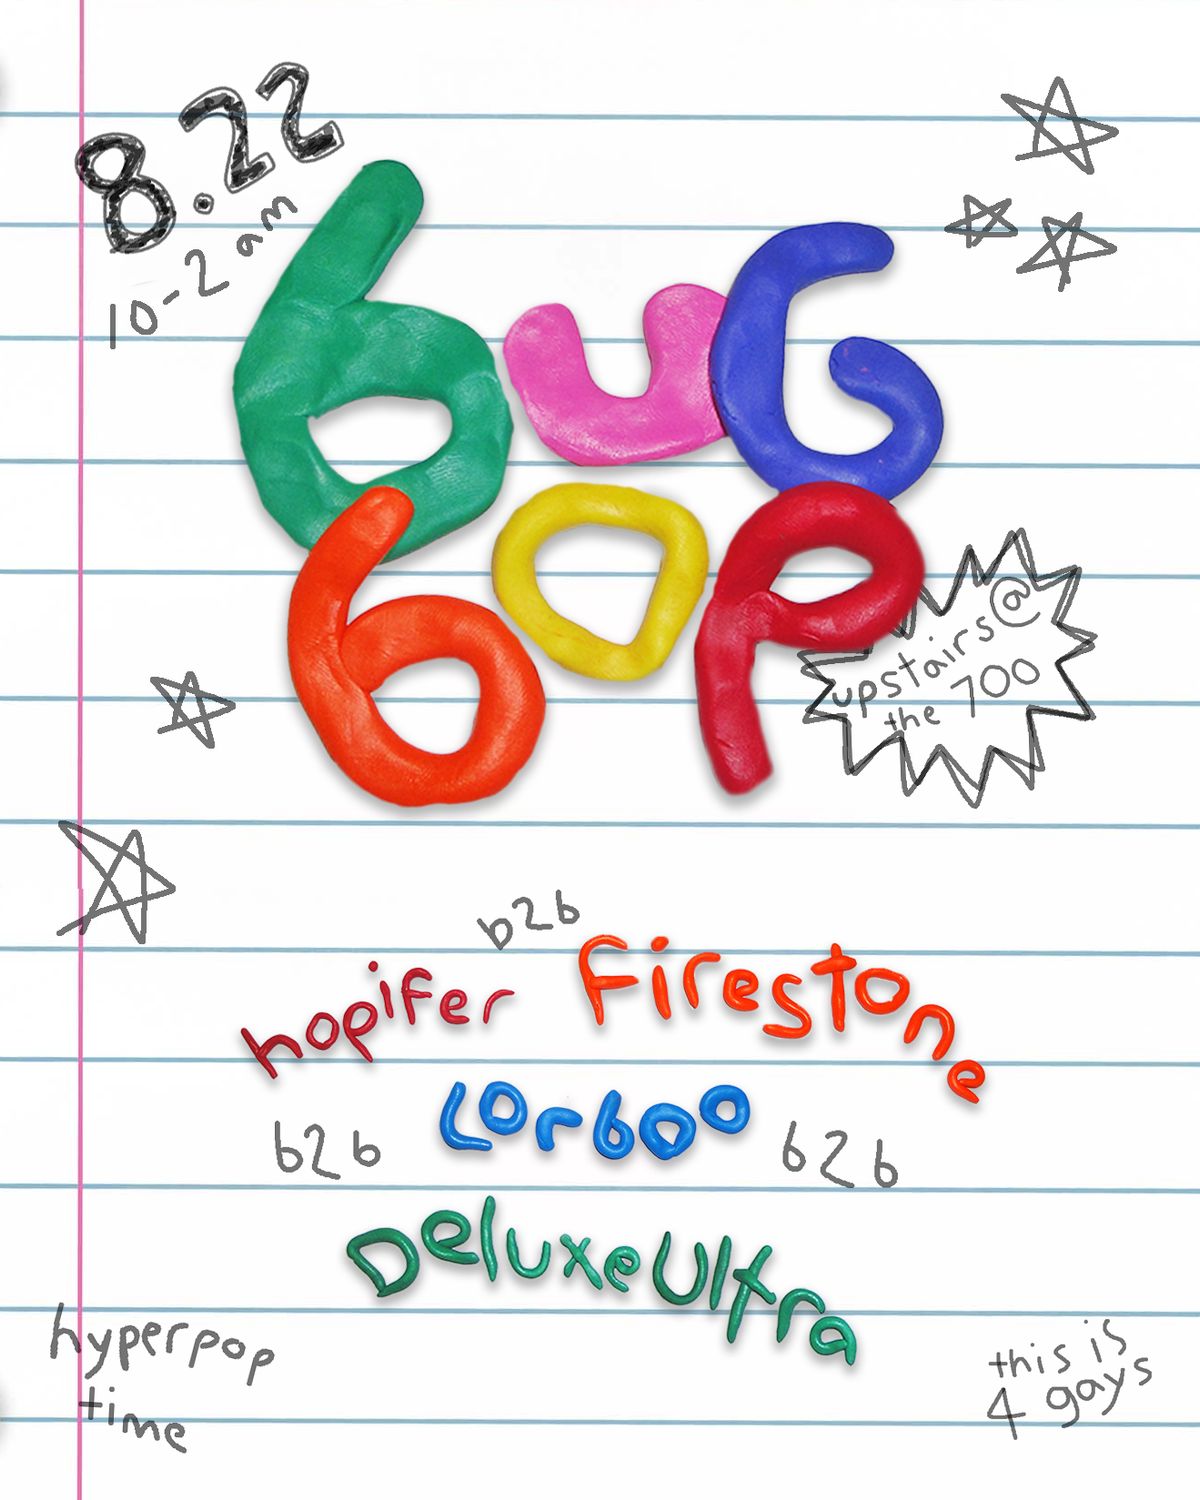 8.22
10-2am
buG
bop
upstairs@
the 700
b2b
hopifer Firestone
b2b Lorboo b2b
DeluxeUltra
hyperpop
time
this is
4 gays